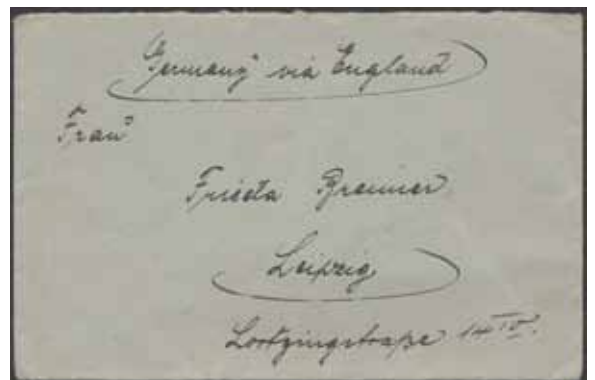 Germany via England
Frau
Frieda
Leipzig
Lortzingstraße 14 IV.